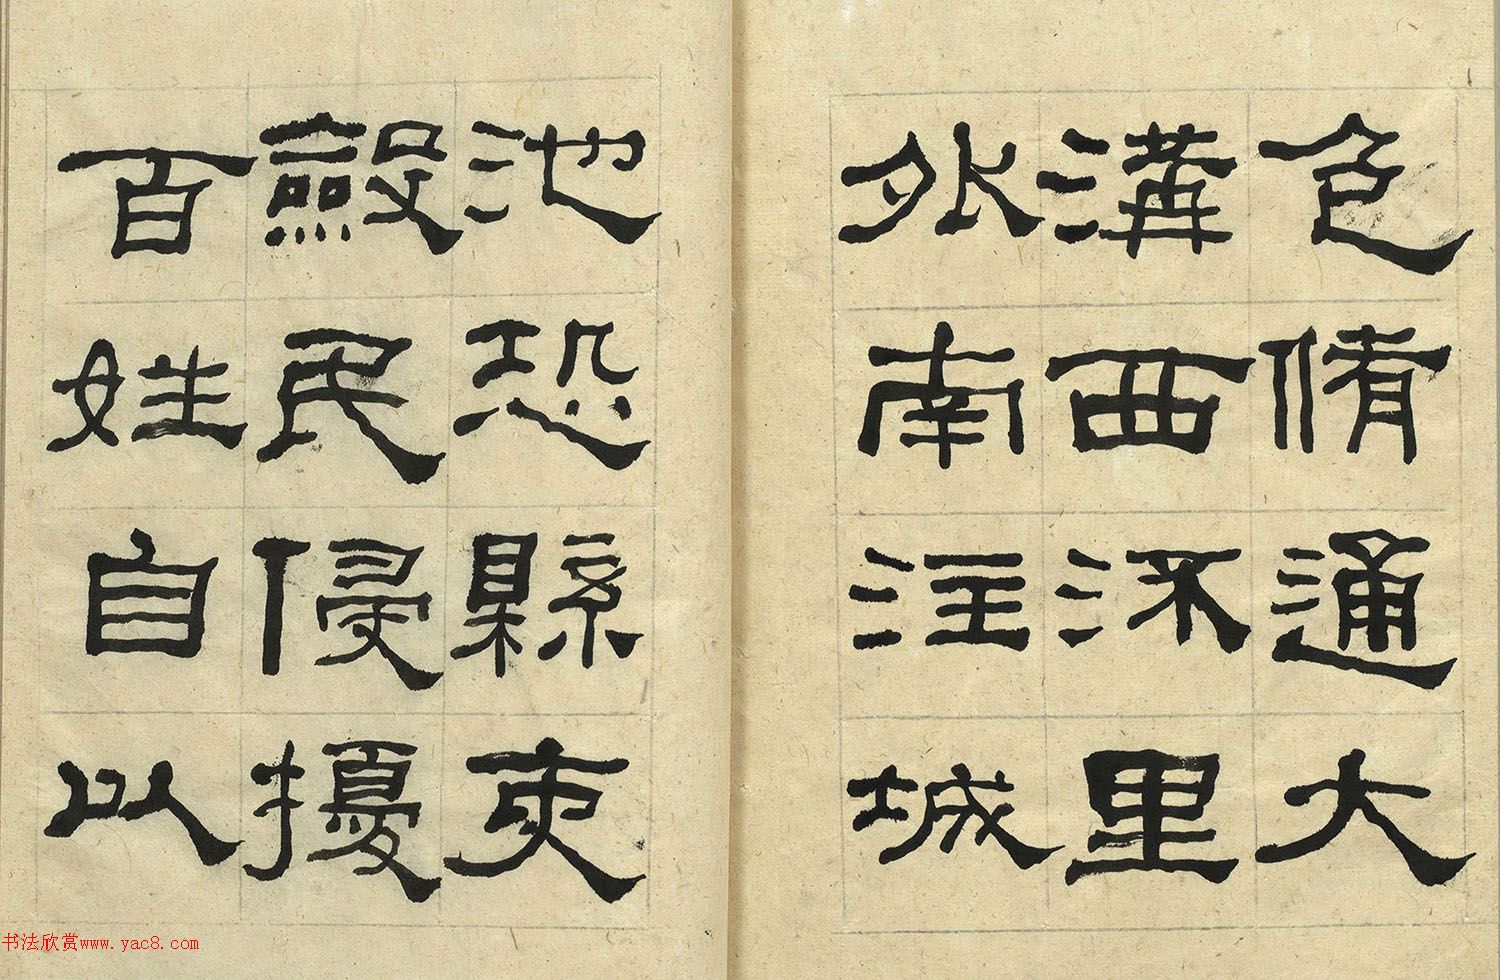 色脩通大
溝西流里
外南注城
池恐縣吏
斂民侵擾
百姓自以
书法欣赏www.yac8.com